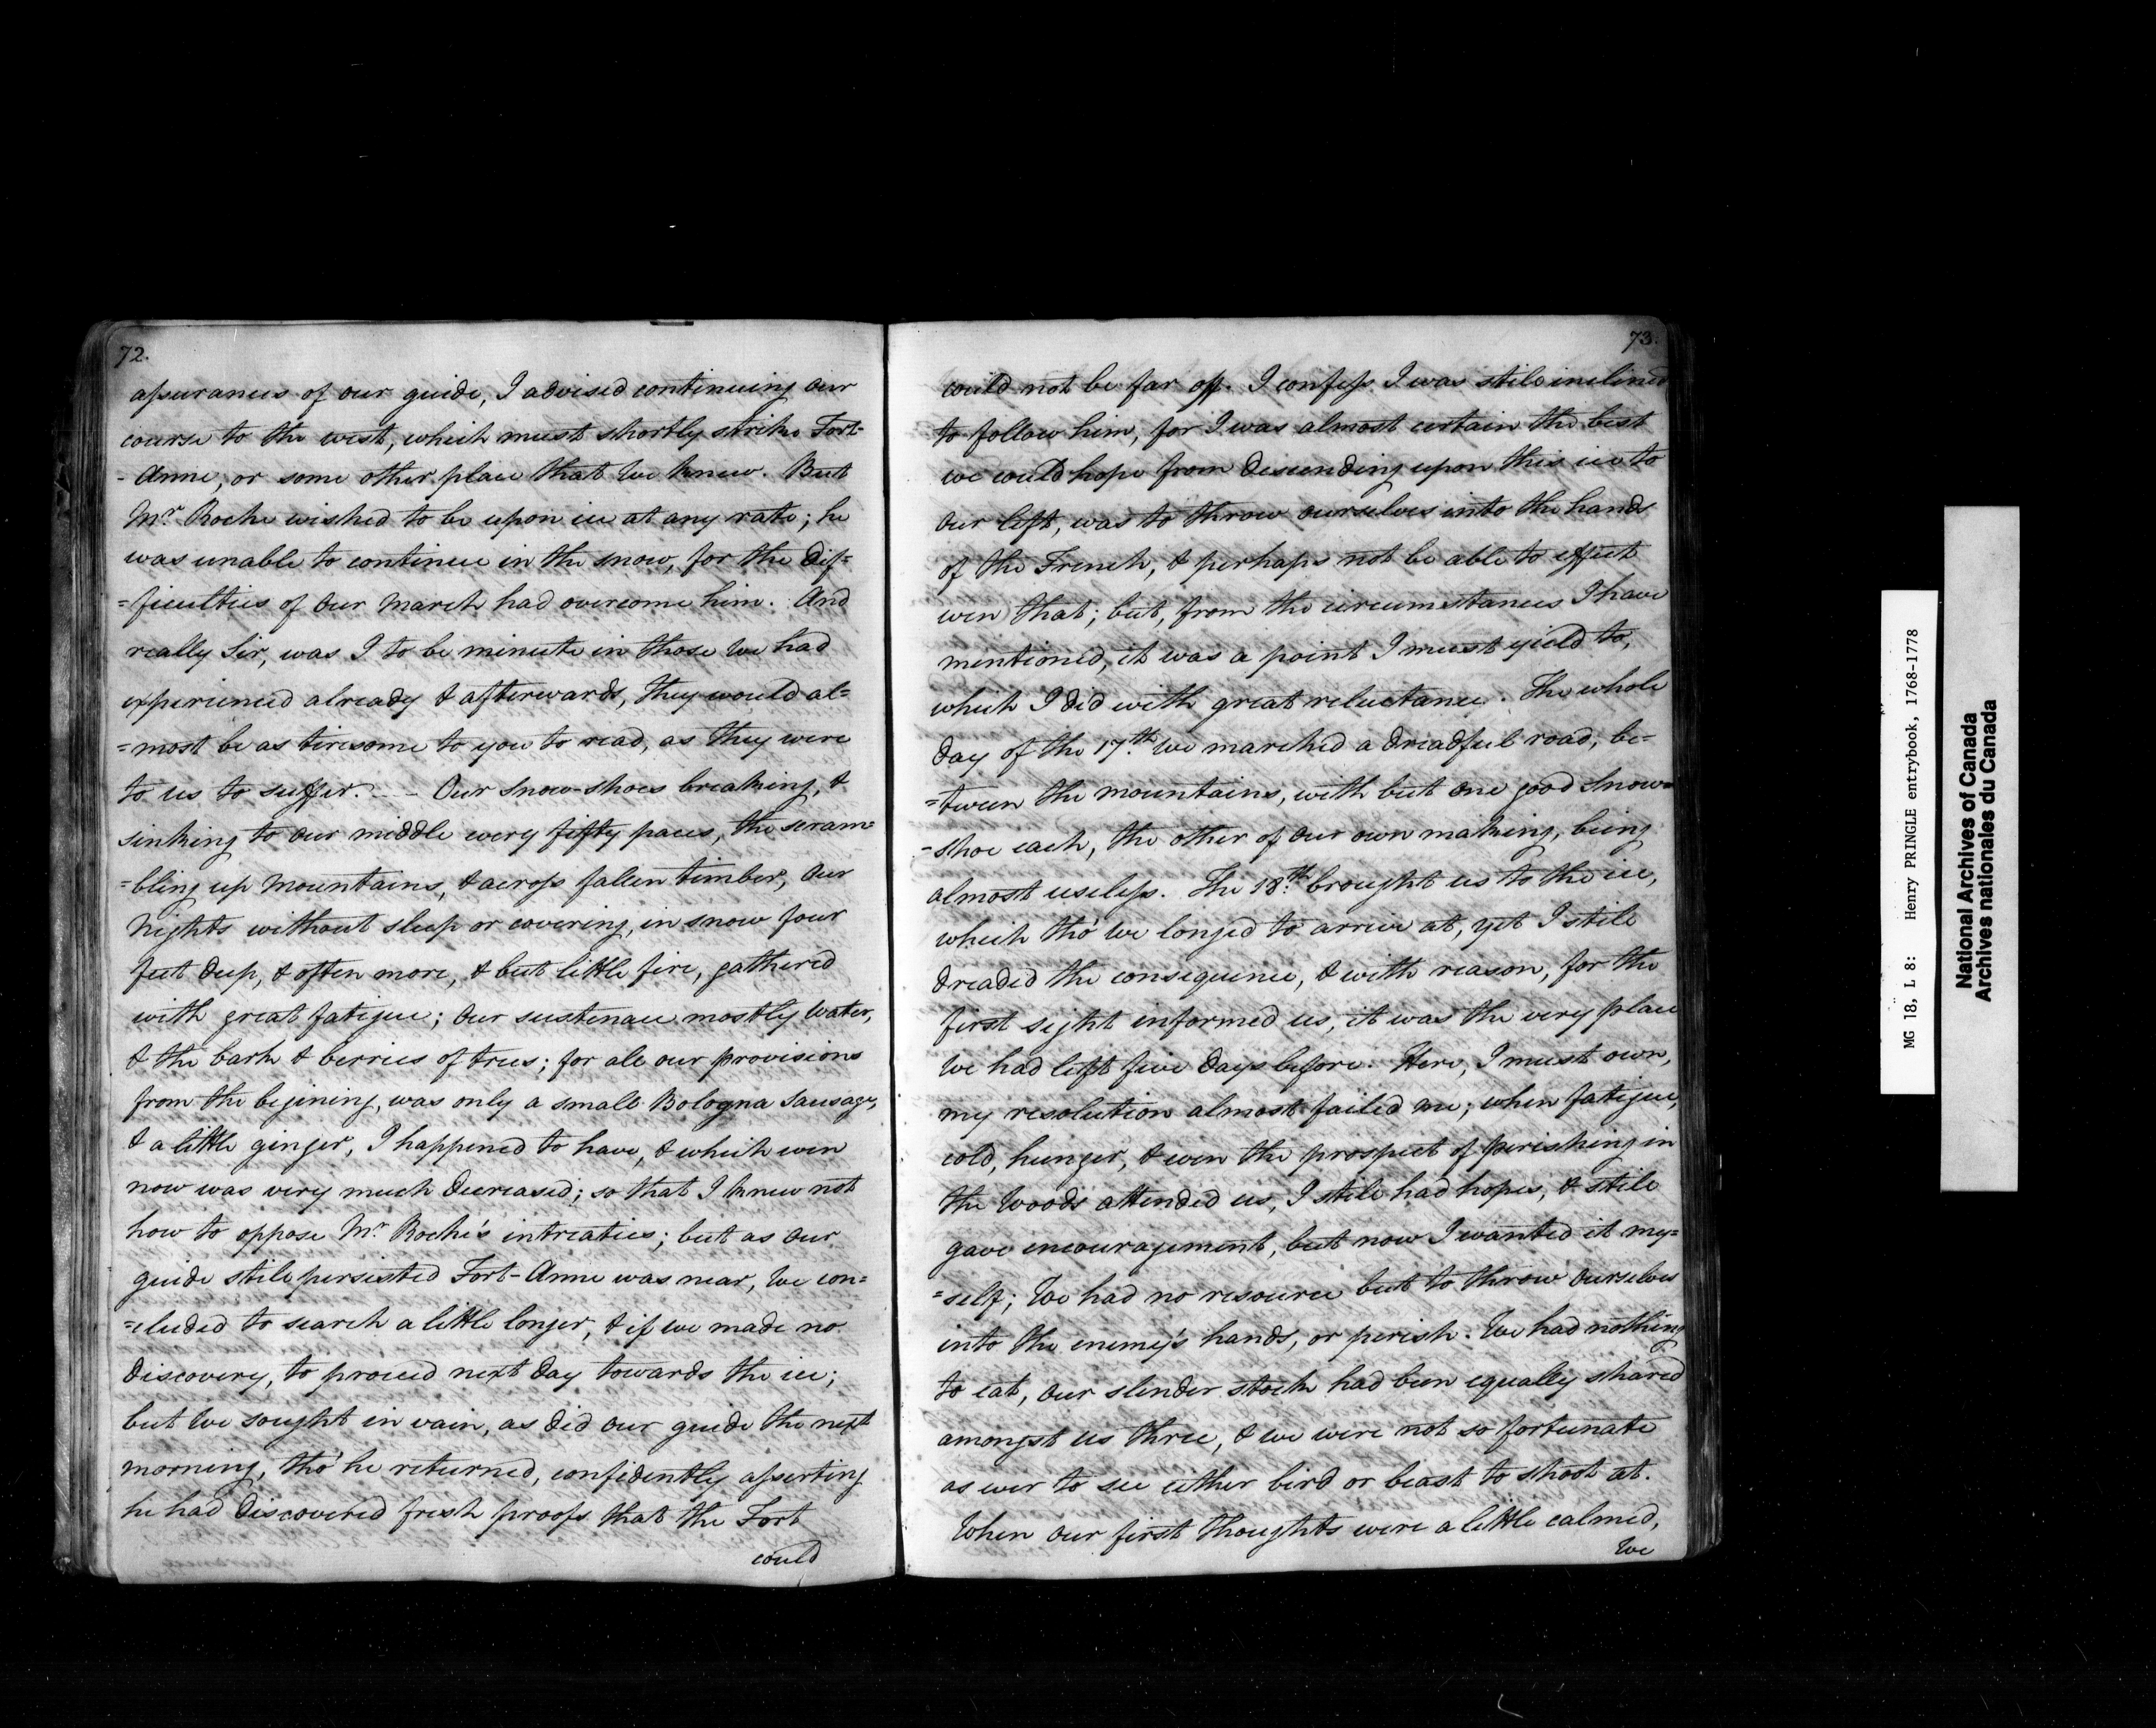 72.
assurances of our guide, I advised continuing our
course to the west, which must shortly strike Fort-
- Anne, or some other place that we knew. But
Mr. Roche wished to be upon ice at any rate; he
was unable to continue in the snow, for the dif=
=ficulties of our march had overcome him. And
really Sir, was I to be minute in those we had
experienced already & afterwards, they would al=
=most be as tiresome to you to read, as they were
to us to suffer. — Our snow-shoes breaking, &
sinking to our middle every fifty paces, the scram=
=bling up mountains, & across fallen timber, our
nights without sleep or covering, in snow four
feet deep, & often more, & but little fire, gathered
with great fatigue; our sustenance mostly water,
& the bark & berries of trees; for all our provisions
from the begining, was only a small Bologna sausage,
& a little ginger, I happened to have, & which even
now was very much decreased; so that I knew not
how to oppose Mr. Roche's intreaties; but as our
guide still persisted Fort-Anne was near, we con=
=cluded to search a little longer, & if we made no
discovery, to proceed next day towards the ice;
but we sought in vain, as did our guide the next
morning, tho' he returned, confidently asserting
he had discovered fresh proofs that the Fort
could
73.
could not be far off. I confess I was still inclined
to follow him, for I was almost certain the best
we could hope from descending upon this ice to
our left, was to throw ourselves into the hands
of the French, & perhaps not be able to effect
even that; but, from the circumstances I have
mentioned, it was a point I must yield to,
which I did with great reluctance. The whole
day of the 17.th we marched a dreadful road, be-
=tween the mountains, with but one good snow=
=shoe each, the other of our own making, being
almost useless. The 18.th brought us to the ice,
which tho' we longed to arrive at, yet I still
dreaded the consequence, & with reason, for the
first sight informed us, it was the very place
we had left five days before. Here, I must own,
my resolution almost failed me; when fatigue,
cold, hunger, & even the prospect of perishing in
the woods attended us, I still had hopes, & still
gave encouragement, but now I wanted it my=
=self; we had no resource but to throw ourselves
into the enemy's hands, or perish. We had nothing
to eat, our slender stock had been equally shared
amongst us three, & we were not so fortunate
as ever to see either bird or beast to shoot at.
When our first thoughts were a little calmed,
we
MG 18, L 8: Henry PRINGLE entrybook, 1768-1778
National Archives of Canada
Archives nationales du Canada